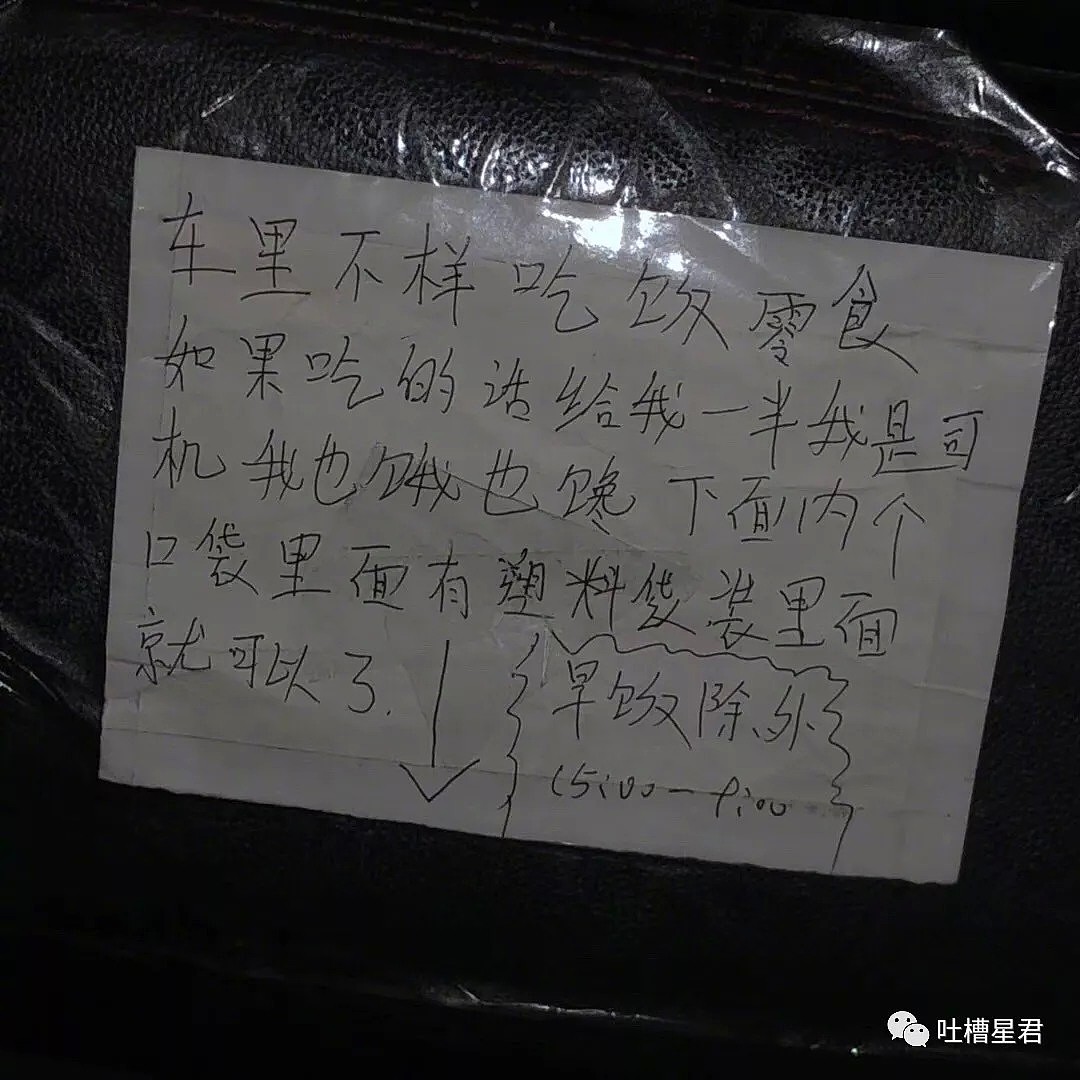 车里不样吃饭零食
如果吃的话给我一半我是司
机我也饿也馋下面内个
口袋里面有塑料袋装里面
就可以了.
早饭除外
(5:00-9:00
吐槽星君